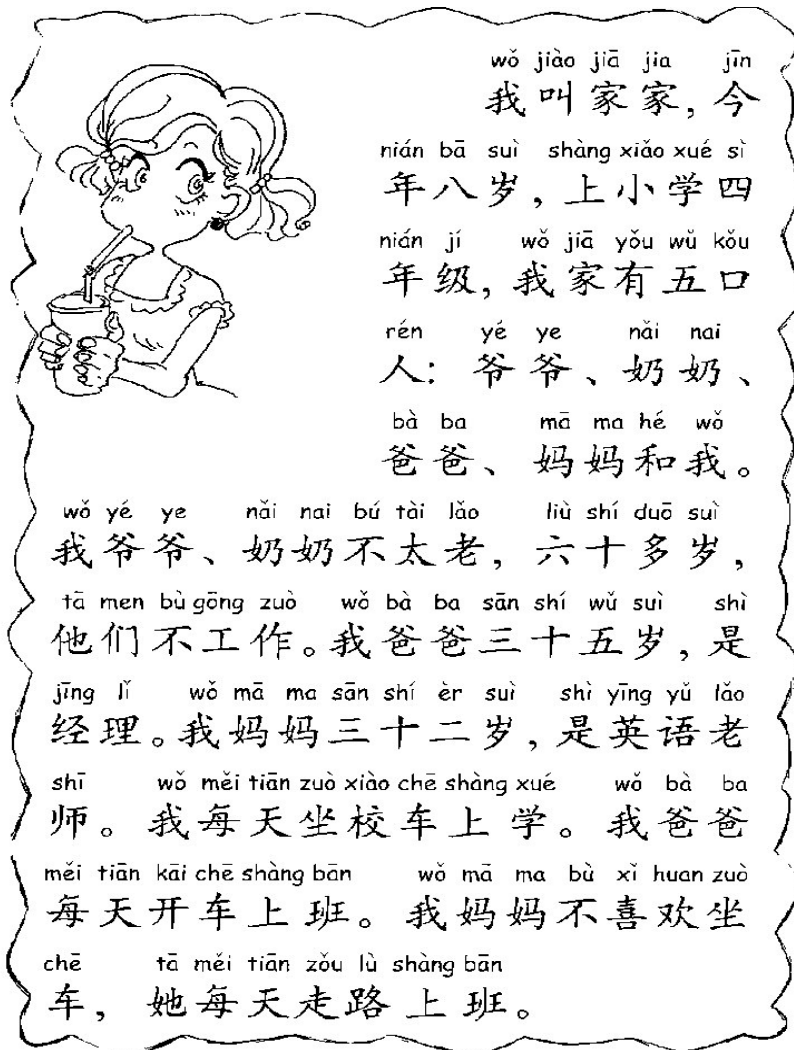 wǒ jiào jiā jia jīn
我叫家家，今
nián bā suì shàng xiǎo xué sì
年八岁，上小学四
nián jí wǒ jiā yǒu wǔ kǒu
年级，我家有五口
rén yé ye nǎi nai
人：爷爷、奶奶、
bà ba mā ma hé wǒ
爸爸、妈妈和我。
wǒ yé ye nǎi nai bú tài lǎo liù shí duō suì
我爷爷、奶奶不太老，六十多岁，
tā men bù gōng zuò wǒ bà ba sān shí wǔ suì shì
他们不工作。我爸爸三十五岁，是
jīng lǐ wǒ mā ma sān shí èr suì shì yīng yǔ lǎo
经理。我妈妈三十二岁，是英语老
shī wǒ měi tiān zuò xiào chē shàng xué wǒ bà ba
师。我每天坐校车上学。我爸爸
měi tiān kāi chē shàng bān wǒ mā ma bù xǐ huan zuò
每天开车上班。我妈妈不喜欢坐
chē tā měi tiān zǒu lù shàng bān
车，她每天走路上班。